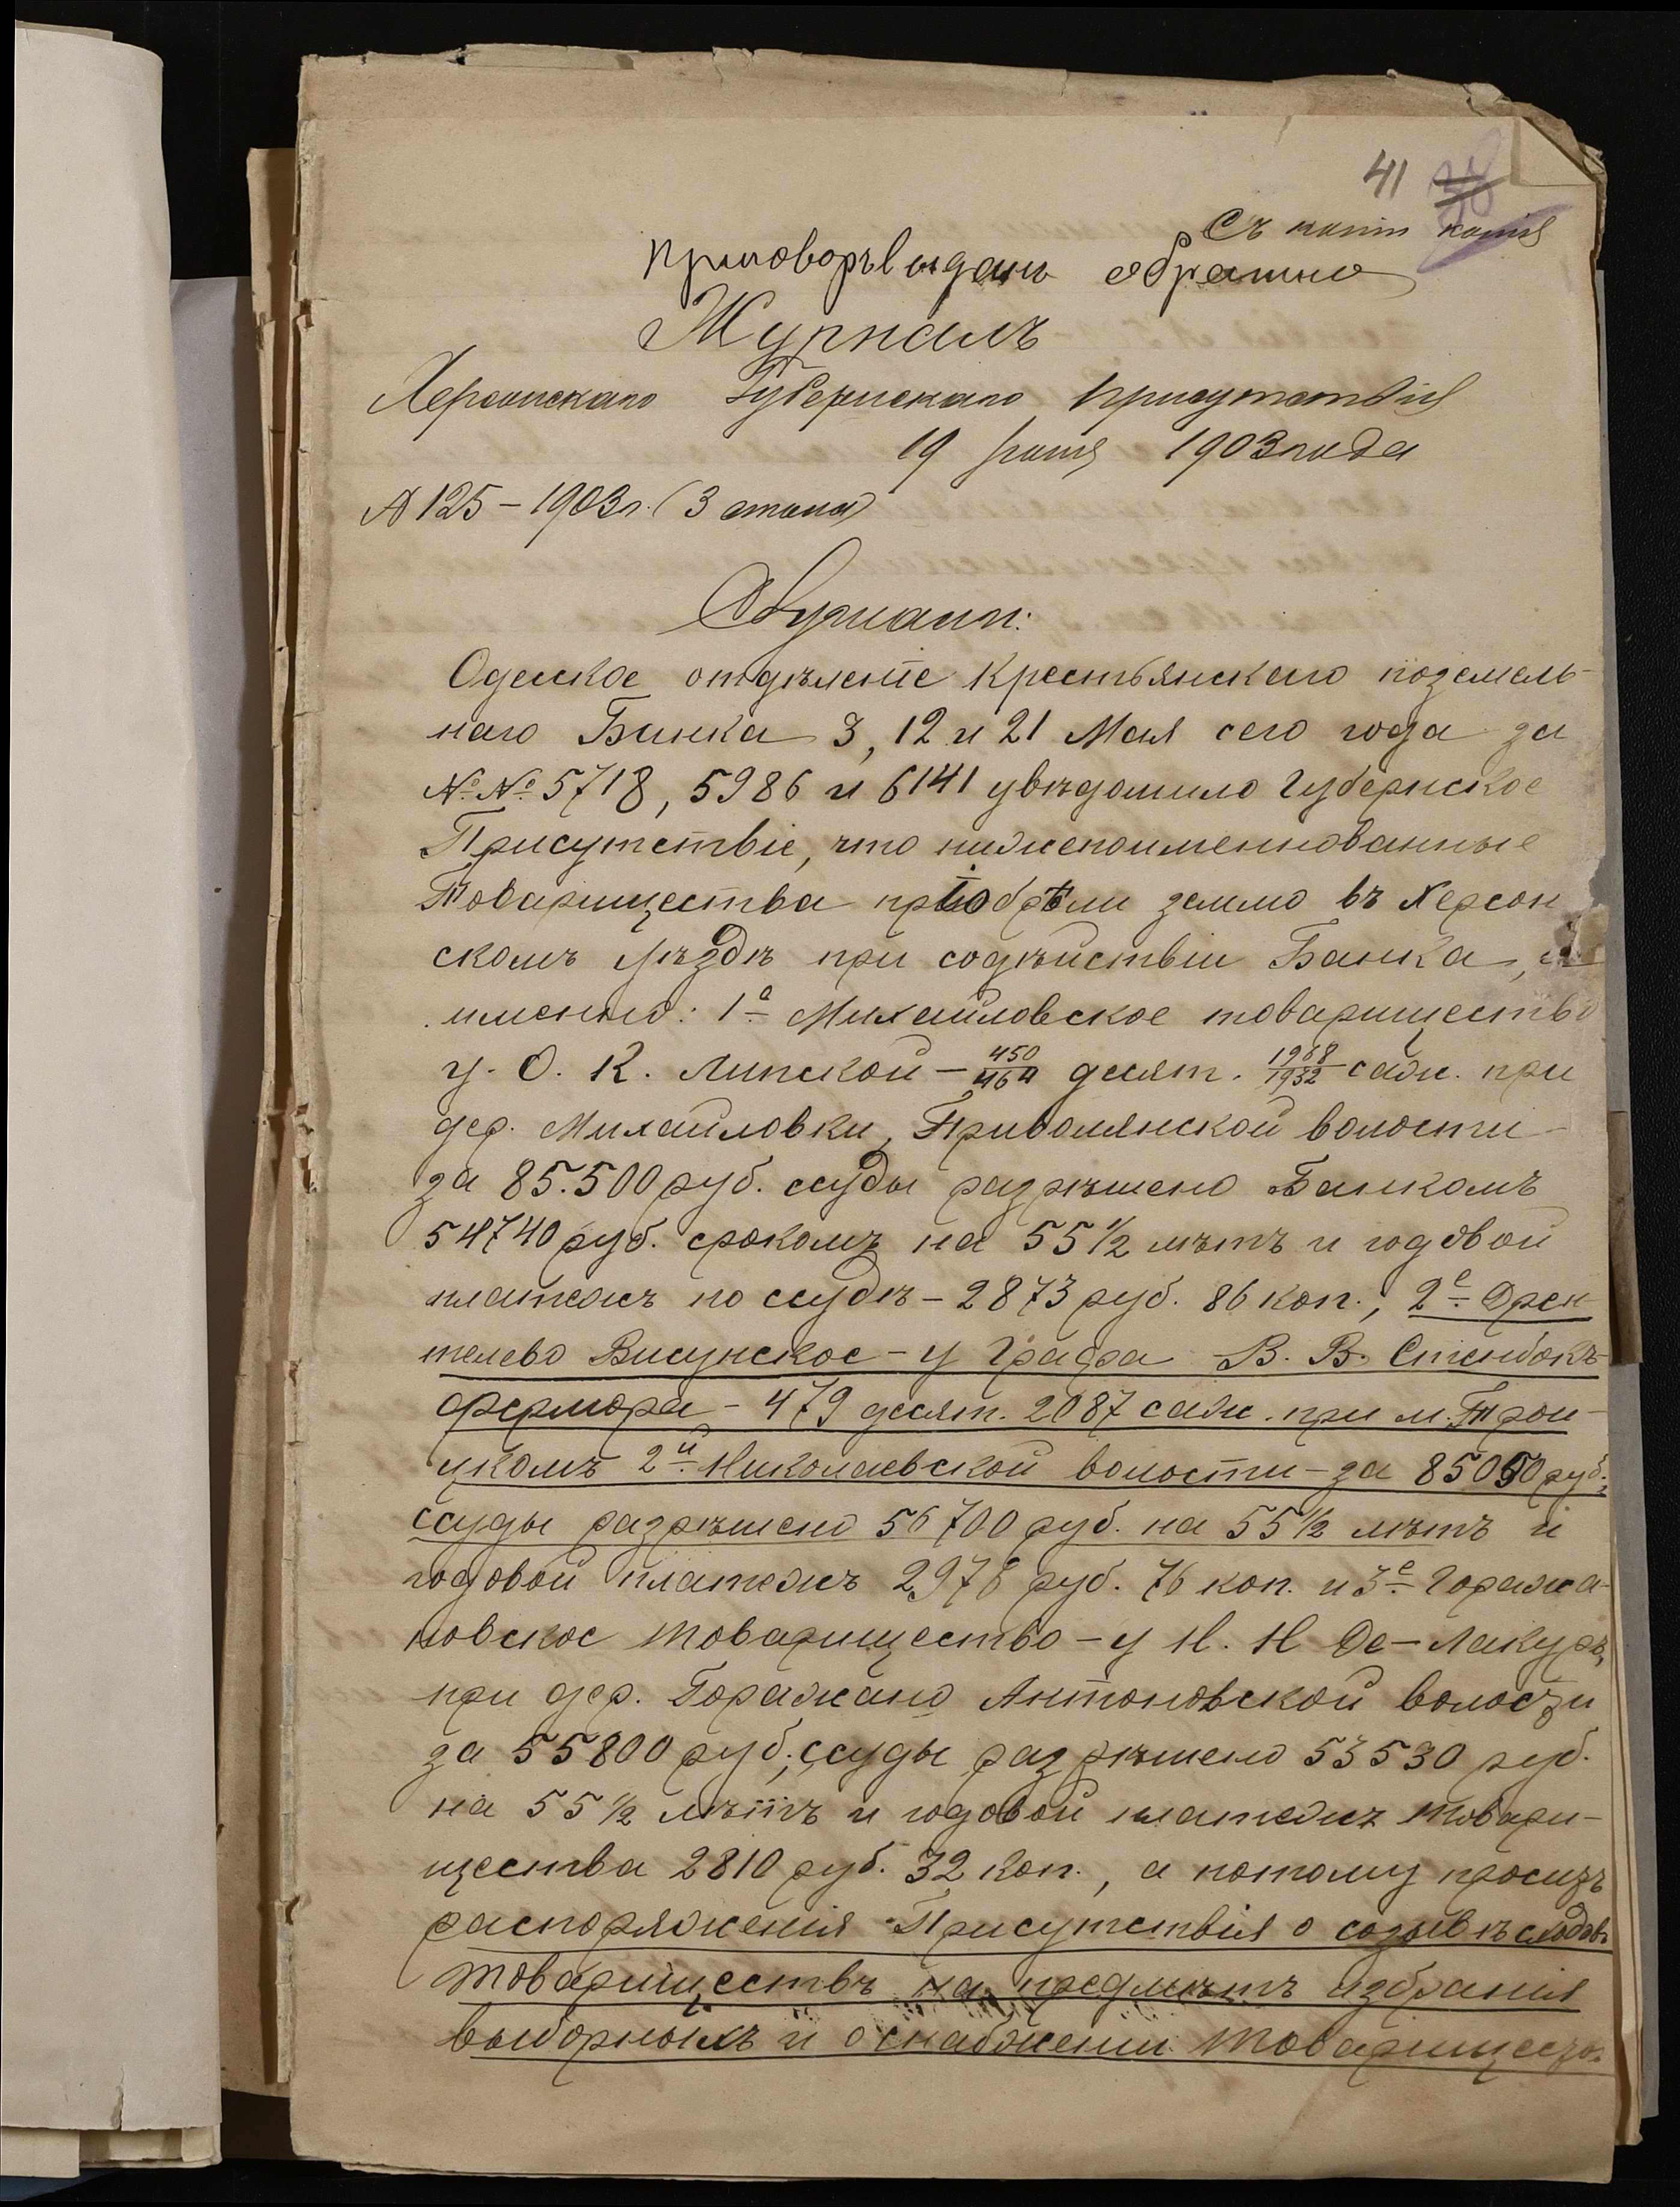 41
Съ копіи копія
Приговоръ выданъ обратно
Журналъ
Херсонскаго Губернскаго Присутствія
19 Іюня 1903 года
№ 125 – 1903 г. (3 стола)
Слушали:
Одесское отдѣленіе Крестьянскаго поземель-
наго Банка 3, 12 и 21 Мая сего года за
№№ 5718, 5986 и 6141 увѣдомило Губернское
Присутствіе, что нижепоименнованные
Товарищества пріобрѣли землю въ Херсон
скомъ уѣздѣ при содѣйствіи Банка, а
именно: 1е Михайловское товарищество
у О. К. Липской – 450/464 десят. 1968/1932 саж. при
дер. Михайловки, Привольянской волости
за 85.500 руб. ссуды разрѣшено Банкомъ
54740 руб. срокомъ на 55 1/2 лѣтъ и годовой
платежъ по ссудѣ – 2873 руб. 86 коп., 2е Дрен
телево Висунское – у Графа В. В. Стенбокъ-
Фермора – 479 десят. 2087 саж. при м. Трои-
цкомъ 2й Николаевской волости – за 85050 руб.;
ссуды разрѣшено 56700 руб. на 55 1/2 лѣтъ и
годовой платежъ 2976 руб. 76 коп. и 3е Горожа-
новское товарищество – у Н. Н Де-Лакуръ,
при дер. Горожано Антоновской волости
за 55800 руб.; ссуды разрѣшено 53530 руб.
на 55 1/2 лѣтъ и годовой платежъ товари-
щества 2810 руб. 32 коп., а потому проситъ
распоряженія Присутствія о созывѣ сходовъ
товариществъ на предметъ избранія
выборныхъ и о снабженіи товарищест